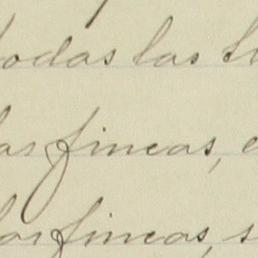 todas las
las fincas,
las fincas, s